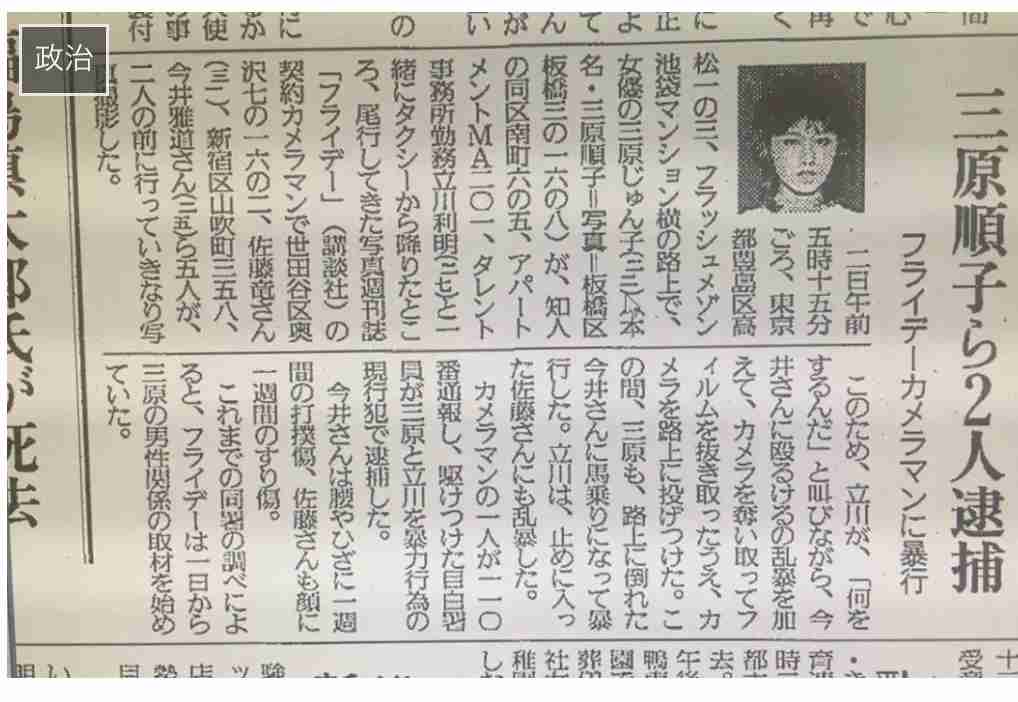 政治
三原順子ら2人逮捕
フライデーカメラマンに暴行
二日午前
五時十五分
ごろ、東京
都豊島区高
松一の三、フラッシュメゾン
池袋マンション横の路上で、
女優の三原じゅん子 本
名・三原順子＝写真＝板橋区
板橋三の一六の八）が、知人
の同区南町六の五、アパート
メントＭＡ二〇一、タレント
事務所勤務立川利明（二七）と一
緒にタクシーから降りたとこ
ろ、尾行してきた写真週刊誌
「フライデー」（講談社）の
契約カメラマンで世田谷区奥
沢七の一六の二、佐藤竜さん
、新宿区山吹町三五八、
今井雅道さん（二五）ら五人が、
二人の前に行っていきなり写
真撮影した。
このため、立川が、「何を
するんだ」と叫びながら、今
井さんに殴るけるの乱暴を加
えて、カメラを奪い取ってフ
ィルムを抜き取ったうえ、カ
メラを路上に投げつけた。こ
の間、三原も、路上に倒れた
今井さんに馬乗りになって暴
行した。立川は、止めに入っ
た佐藤さんにも乱暴した。
カメラマンの一人が一一〇
番通報し、駆けつけた目白署
員が三原と立川を暴力行為の
現行犯で逮捕した。
今井さんは腰やひざに一週
間の打撲傷、佐藤さんも顔に
一週間のすり傷。
これまでの同署の調べによ
ると、フライデーは一日から
三原の男性関係の取材を始め
ていた。
太郎氏が死去